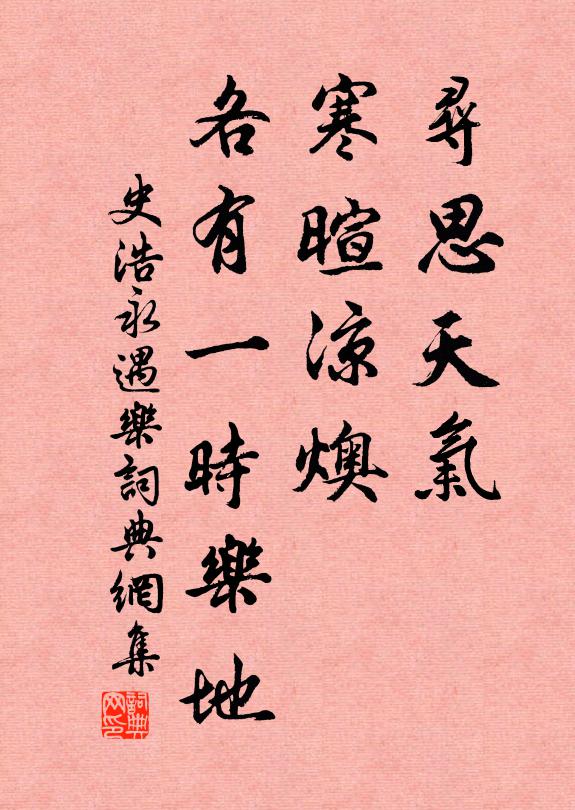 尋思天氣
寒暄涼燠
各有一時樂地
史浩永遇樂詞典網集
詞典网印